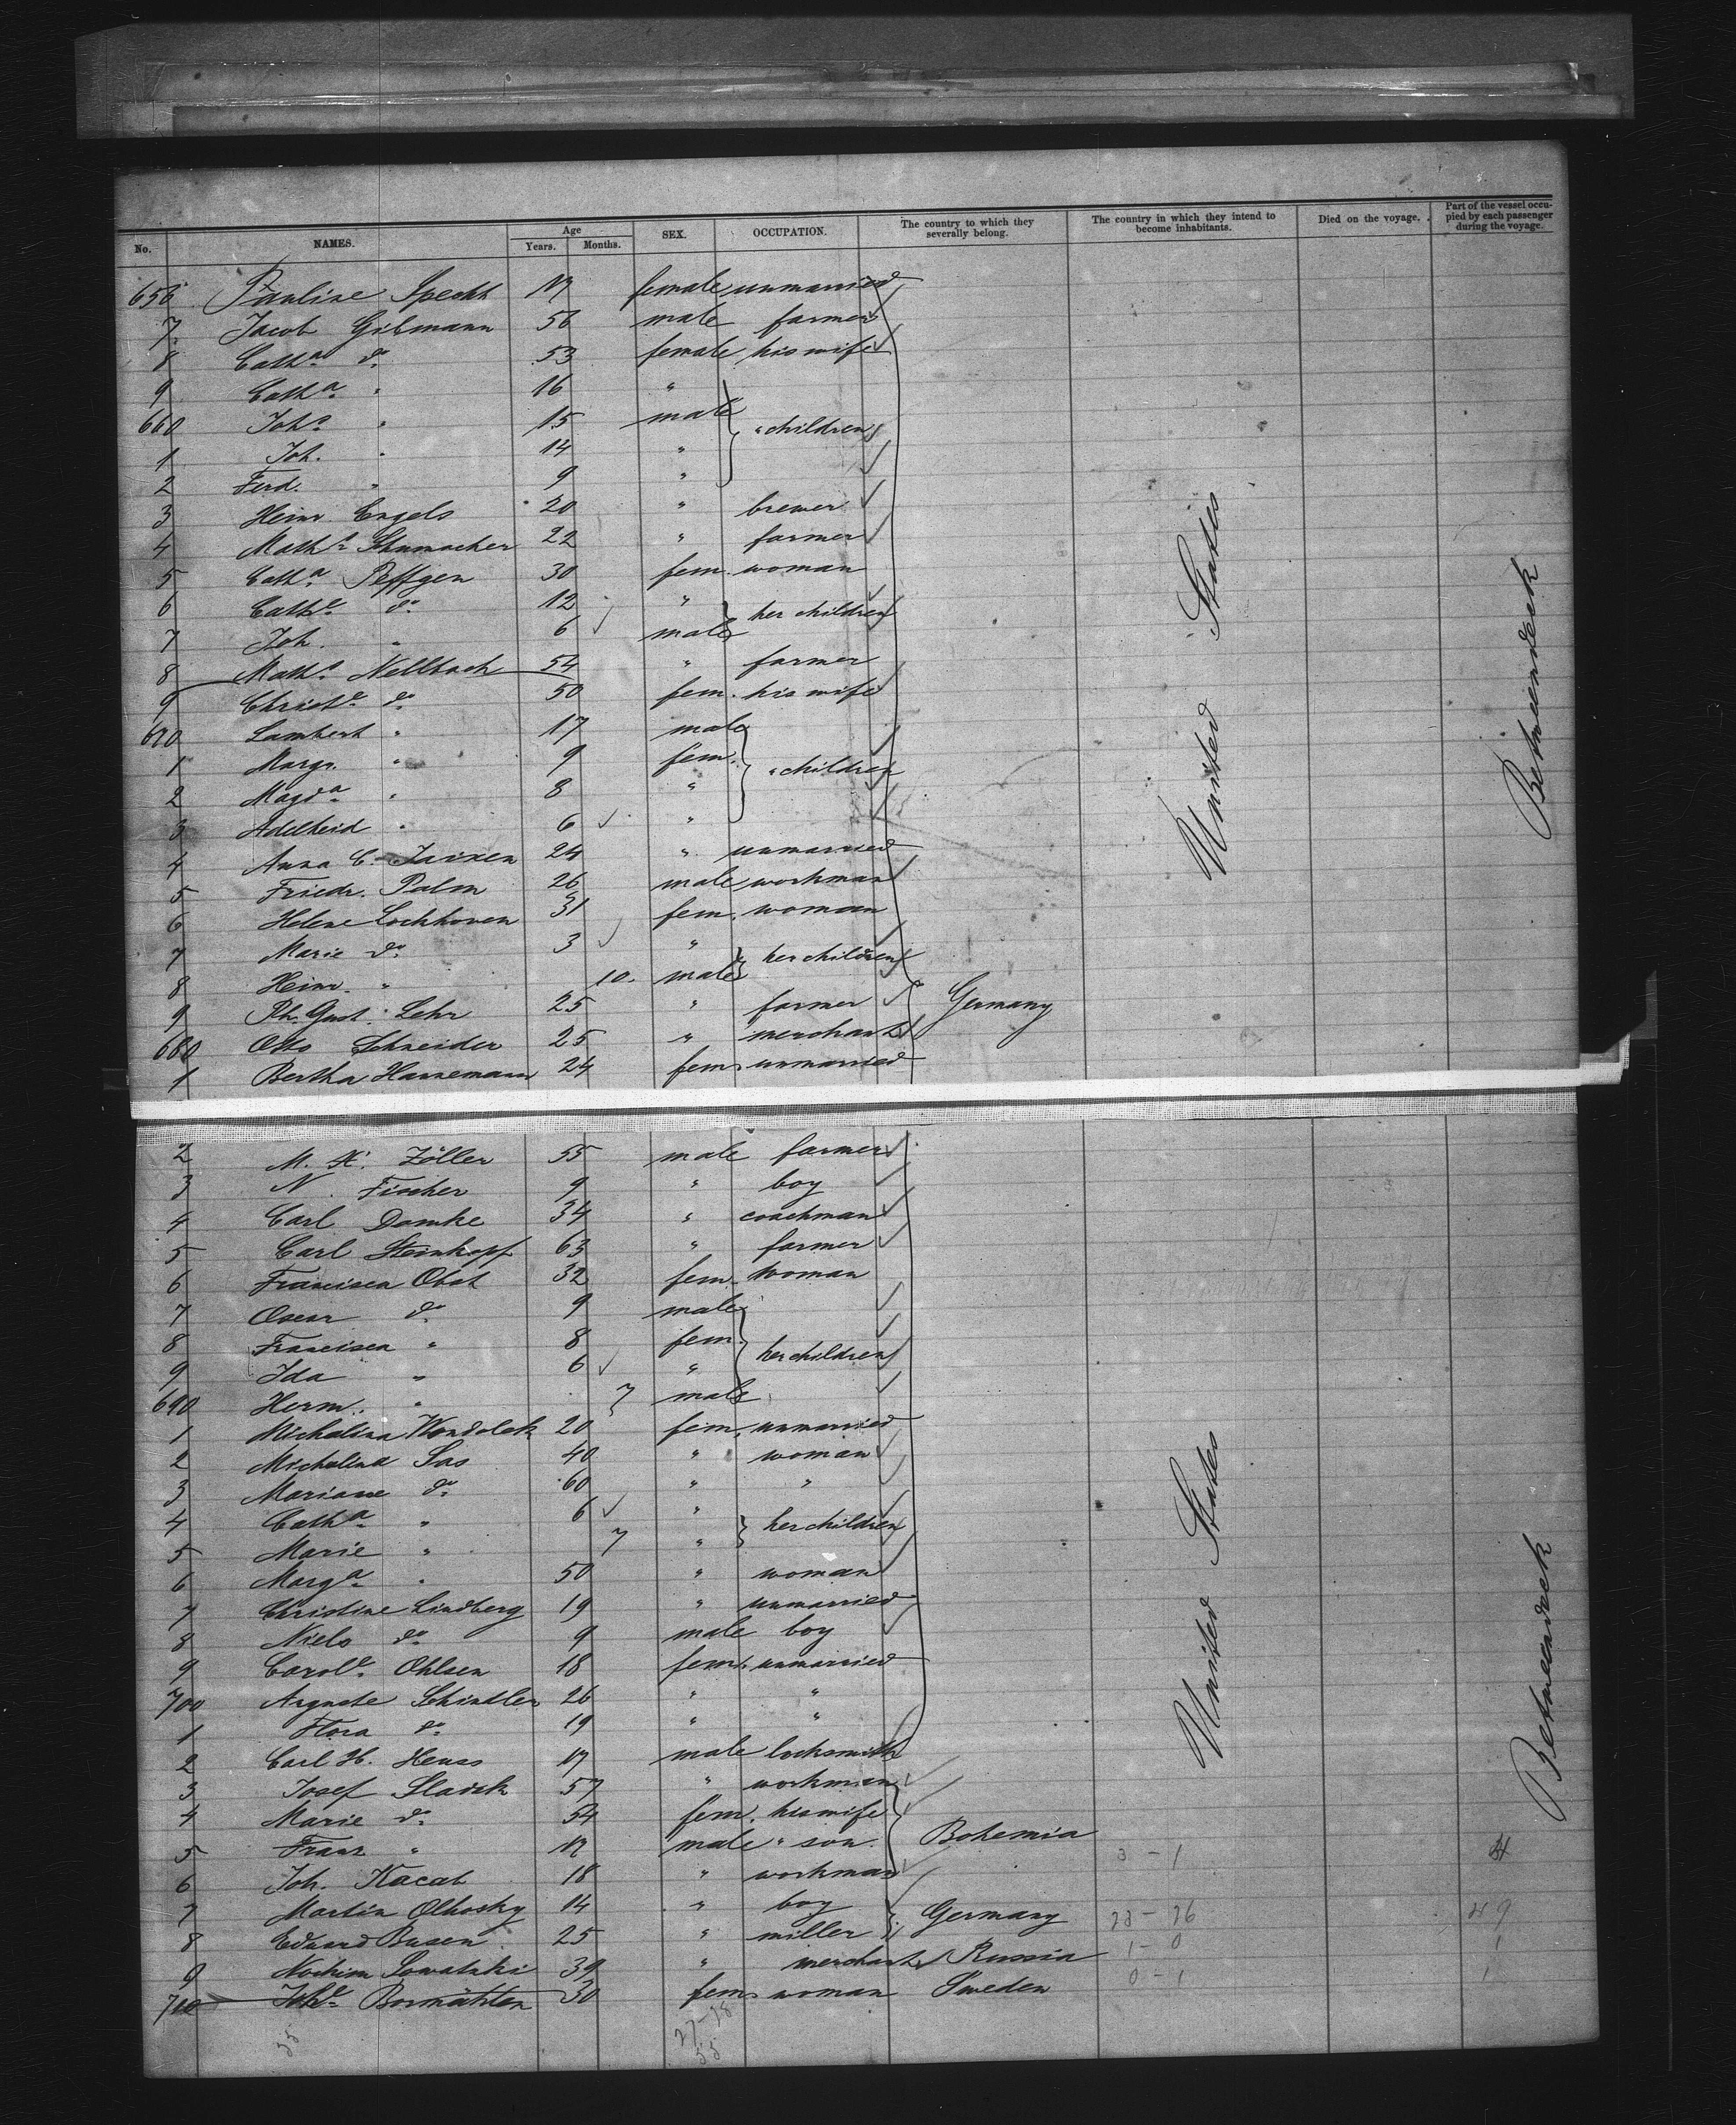 No. NAMES. Age Years. Months. SEX. OCCUPATION. The country to which they severally belong. The country in which they intend to become inhabitants. Died on the voyage. Part of the vessel occupied by each passenger during the voyage.
656 Pauline Specht 17 female unmarried
7. Jacob Gilmann 56 male farmer
8 Catha. do. 53 female his wife
9 Catha. " 16 "
660 Joh. " 15 male " children
1 Joh. " 14 "
2 Ferd. " 9 "
3 Heinr. Engels 20 " brewer
4 Maths. Schumacher 22 " farmer
5 Catha. Peffgen 30 fem. woman
6 Cathe. do. 12 " her children
7 Joh. " 6 male
8 Maths. Nellbach 54 " farmer
9 Christe. do. 50 fem. his wife
670 Lambert " 17 male
1 Margr. " 9 fem. " children
2 Magda. " 8 "
3 Adelheid " 6 "
4 Anna C. Jaixen 24 " unmarried
5 Friedr. Palm 26 male workman
6 Helene Lochhoven 31 fem. woman
7 Marie do. 3 " her children
8 Heinr. " 10. male
9 Ph. Gust. Lehr 25 " farmer Germany
680 Otto Schneider 25 " merchant
1 Bertha Hannemann 24 fem. unmarried
United States
Betweendeck
2 M. H. Zöller 55 male farmer
3 N. Fischer 9 " boy
4 Carl Domke 34 " coachman
5 Carl Steinkopf 63 " farmer
6 Francisca Obst 32 fem. woman
7 Oscar do. 9 male
8 Francisca " 8 fem. her children
9 Ida " 6 "
690 Herm. " 7 male
1 Michalina Wondolek 20 fem. unmarried
2 Michalina Sas 40 " woman
3 Mariane do. 60 " "
4 Catha. " 6 " her children
5 Marie " 7 "
6 Marga. " 50 " woman
7 Christine Lindberg 19 " unmarried
8 Niels do. 9 male boy
9 Carole. Ohlsen 18 fem. unmarried
700 Auguste Schindler 26 " "
1 Flora do. 19 " "
2 Carl H. Heuss 17 male locksmith
3 Josef Slaisk 57 " workman
4 Marie do. 54 fem. his wife
5 Franz " 17 male " son Bohemia 3 - 1 4
6 Joh. Kacab 18 " workman
7 Martin Olhosky 14 " boy Germany
8 Eduard Busen 25 " miller
9 Nochim Lowatzki 39 " merchant Russia 1 - 0 1
710 Bormästen 30 fem. woman Sweden 0 - 1 1
United States
Betweendeck
55
27-28
55